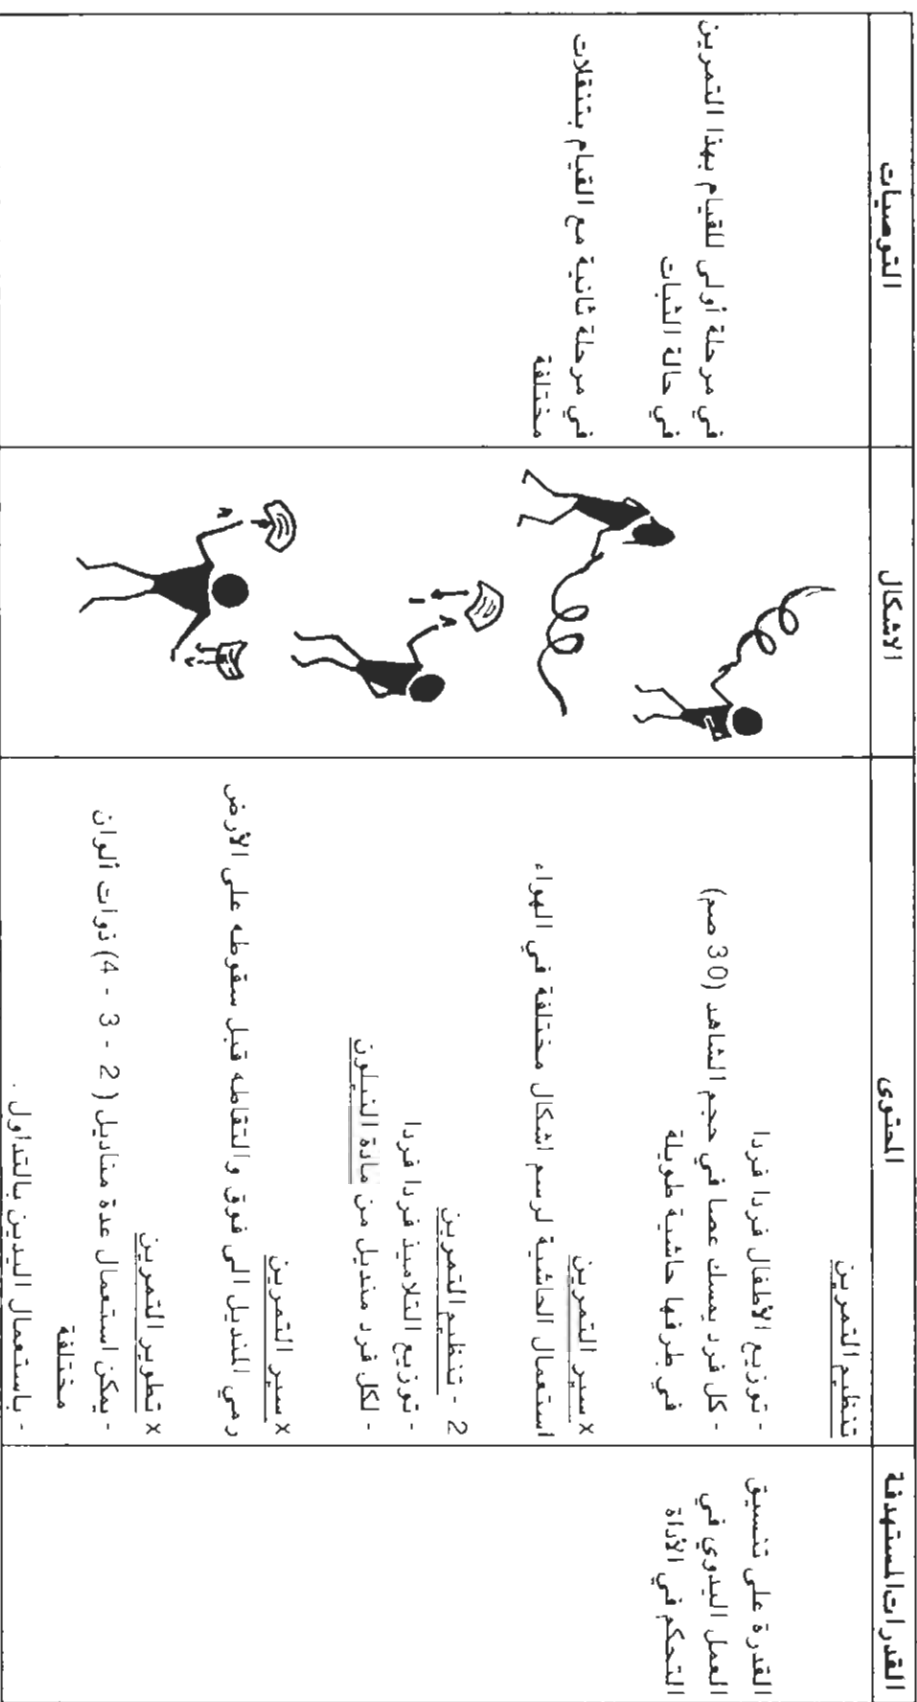 القدرات المستهدفة
المحتوى
الاشكال
التوصيات
القدرة على تنسيق
العمل اليدوي في
التحكم في الأداة
تنظيم التمرين
- توزيع الأطفال فردا فردا
- كل فرد يمسك عصا في حجم الشاهد (30 صم)
في طرفها حاشية طويلة
x سير التمرين
استعمال الحاشية لرسم اشكال مختلفة في الهواء
2 - تنظيم التمرين
- توزيع التلاميذ فردا فردا
- لكل فرد منديل من مادة النيلون
x سير التمرين
رمي المنديل الى فوق و التقاطه قبل سقوطه على الأرض
x تطوير التمرين
- يمكن استعمال عدة مناديل ( 2 - 3 - 4) ذوات ألوان
مختلفة
- باستعمال اليدين بالتداول .
في مرحلة أولى للقيام بهذا التمرين
في حالة الثبات
في مرحلة ثانية مع القيام بتنقلات
مختلفة